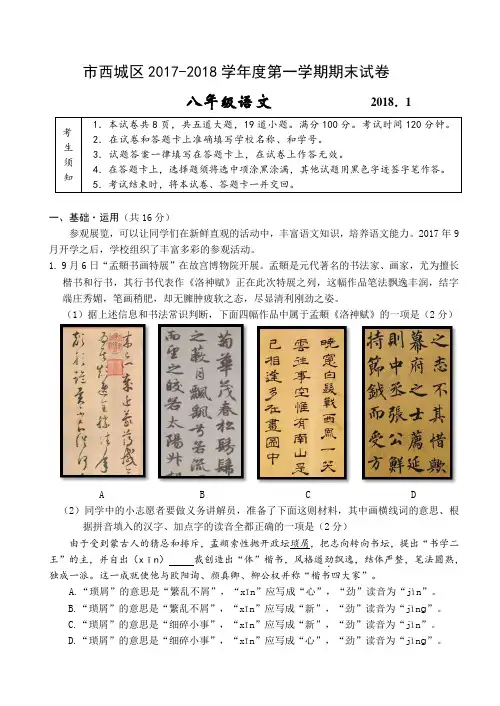 市西城区2017-2018学年度第一学期期末试卷
八年级语文 2018．1
考生须知
1．本试卷共8页，共五道大题，19道小题。满分100分。考试时间120分钟。
2．在试卷和答题卡上准确填写学校名称、和学号。
3．试题答案一律填写在答题卡上，在试卷上作答无效。
4．在答题卡上，选择题须将选中项涂黑涂满，其他试题用黑色字迹签字笔作答。
5．考试结束时，将本试卷、答题卡一并交回。
一、基础·运用（共16分）
参观展览，可以让同学们在新鲜直观的活动中，丰富语文知识，培养语文能力。2017年9
月开学之后，学校组织了丰富多彩的参观活动。
1. 9月6日“孟頫书画特展”在故宫博物院开展。孟頫是元代著名的书法家、画家，尤为擅长
楷书和行书，其行书代表作《洛神赋》正在此次特展之列，这幅作品笔法飘逸丰润，结字
端庄秀媚，笔画稍肥，却无臃肿疲软之态，尽显清利刚劲之姿。
（1）据上述信息和书法常识判断，下面四幅作品中属于孟頫《洛神赋》的一项是（2分）
菊華茂春松髣髴
之蔽月飄飄兮若流
而望之皎若太陽升朝
曉窓白髮戰西風一笑
雲往事空惟有南山是
已相逢多在畫圖中
之志不其惜歟
幕府之士薦延
則中丞張公鮮
持節鉞而受方
A B C D
（2）同学中的小志愿者要做义务讲解员，准备了下面这则材料，其中画横线词的意思、根
据拼音填入的汉字、加点字的读音全都正确的一项是（2分）
由于受到蒙古人的猜忌和排斥，孟頫索性抛开政坛琐屑，把志向转向书坛，提出“书学二
王”的主，并自出（xīn） 裁创造出“体”楷书，风格遒劲飘逸，结体严整，笔法圆熟，
独成一派。这一成就使他与欧阳询、颜真卿、柳公权并称“楷书四大家”。
A.“琐屑”的意思是“繁乱不屑”，“xīn”应写成“心”，“劲”读音为“jìn”。
B.“琐屑”的意思是“繁乱不屑”，“xīn”应写成“新”，“劲”读音为“jìng”。
C.“琐屑”的意思是“细碎小事”，“xīn”应写成“新”，“劲”读音为“jìn”。
D.“琐屑”的意思是“细碎小事”，“xīn”应写成“心”，“劲”读音为“jìng”。